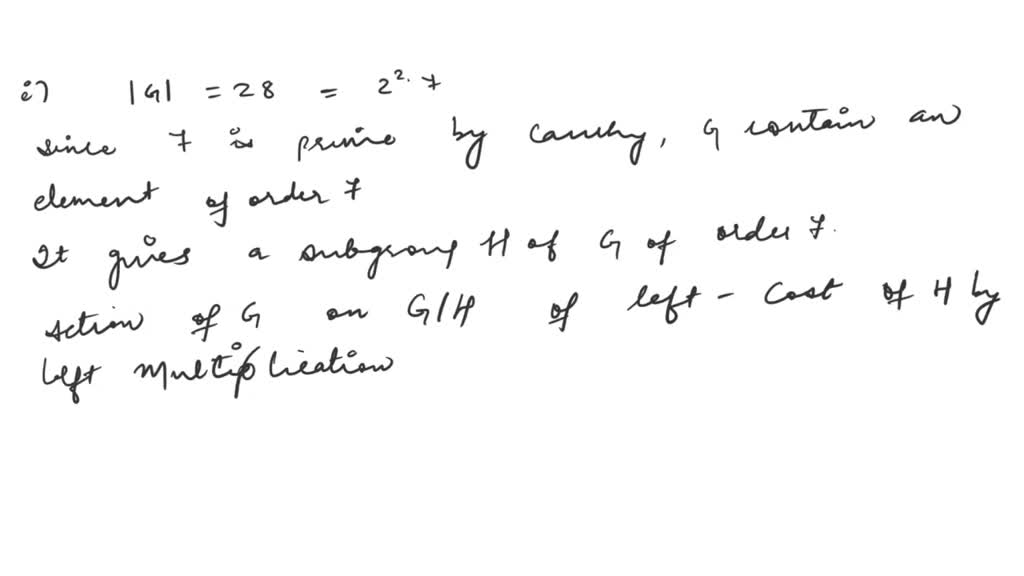 i) |G| = 28 = 2². 7
since 7 is prime by cauchy, G contain an
element of order 7
It gives a subgroup H of G of order 7.
action of G on G/H of left - cost of H by
left multiplication